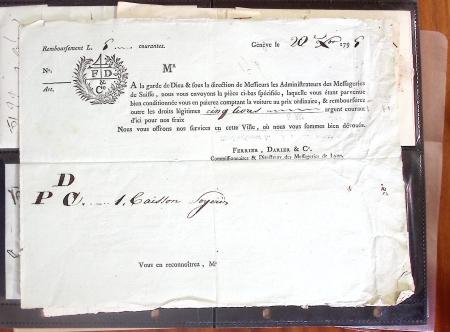 Remboursement L. 6 courantes. Genève le 20 Xbre 1795
Nº.
Art.
4
F D
& Cº
Mʳ
A la garde de Dieu & sous la direction de Messieurs les Administrateurs des Messageries
de Suisse, nous vous envoyons la pièce ci-bas spécifiée, laquelle vous étant parvenue
bien conditionnée vous en paierez comptant la voiture au prix ordinaire, & rembourserez
outre les droits légitimes cinq livres argent courant
d'ici pour nos frais
Nous vous offrons nos services en cette Ville, où nous vous sommes bien dévoués.
FERRIER, DARIER & Cº.
Commissionnaires & Directeurs des Messageries de Lyon.
D
P C 1. Caisson
Vous en reconnoîtrez, Mʳ